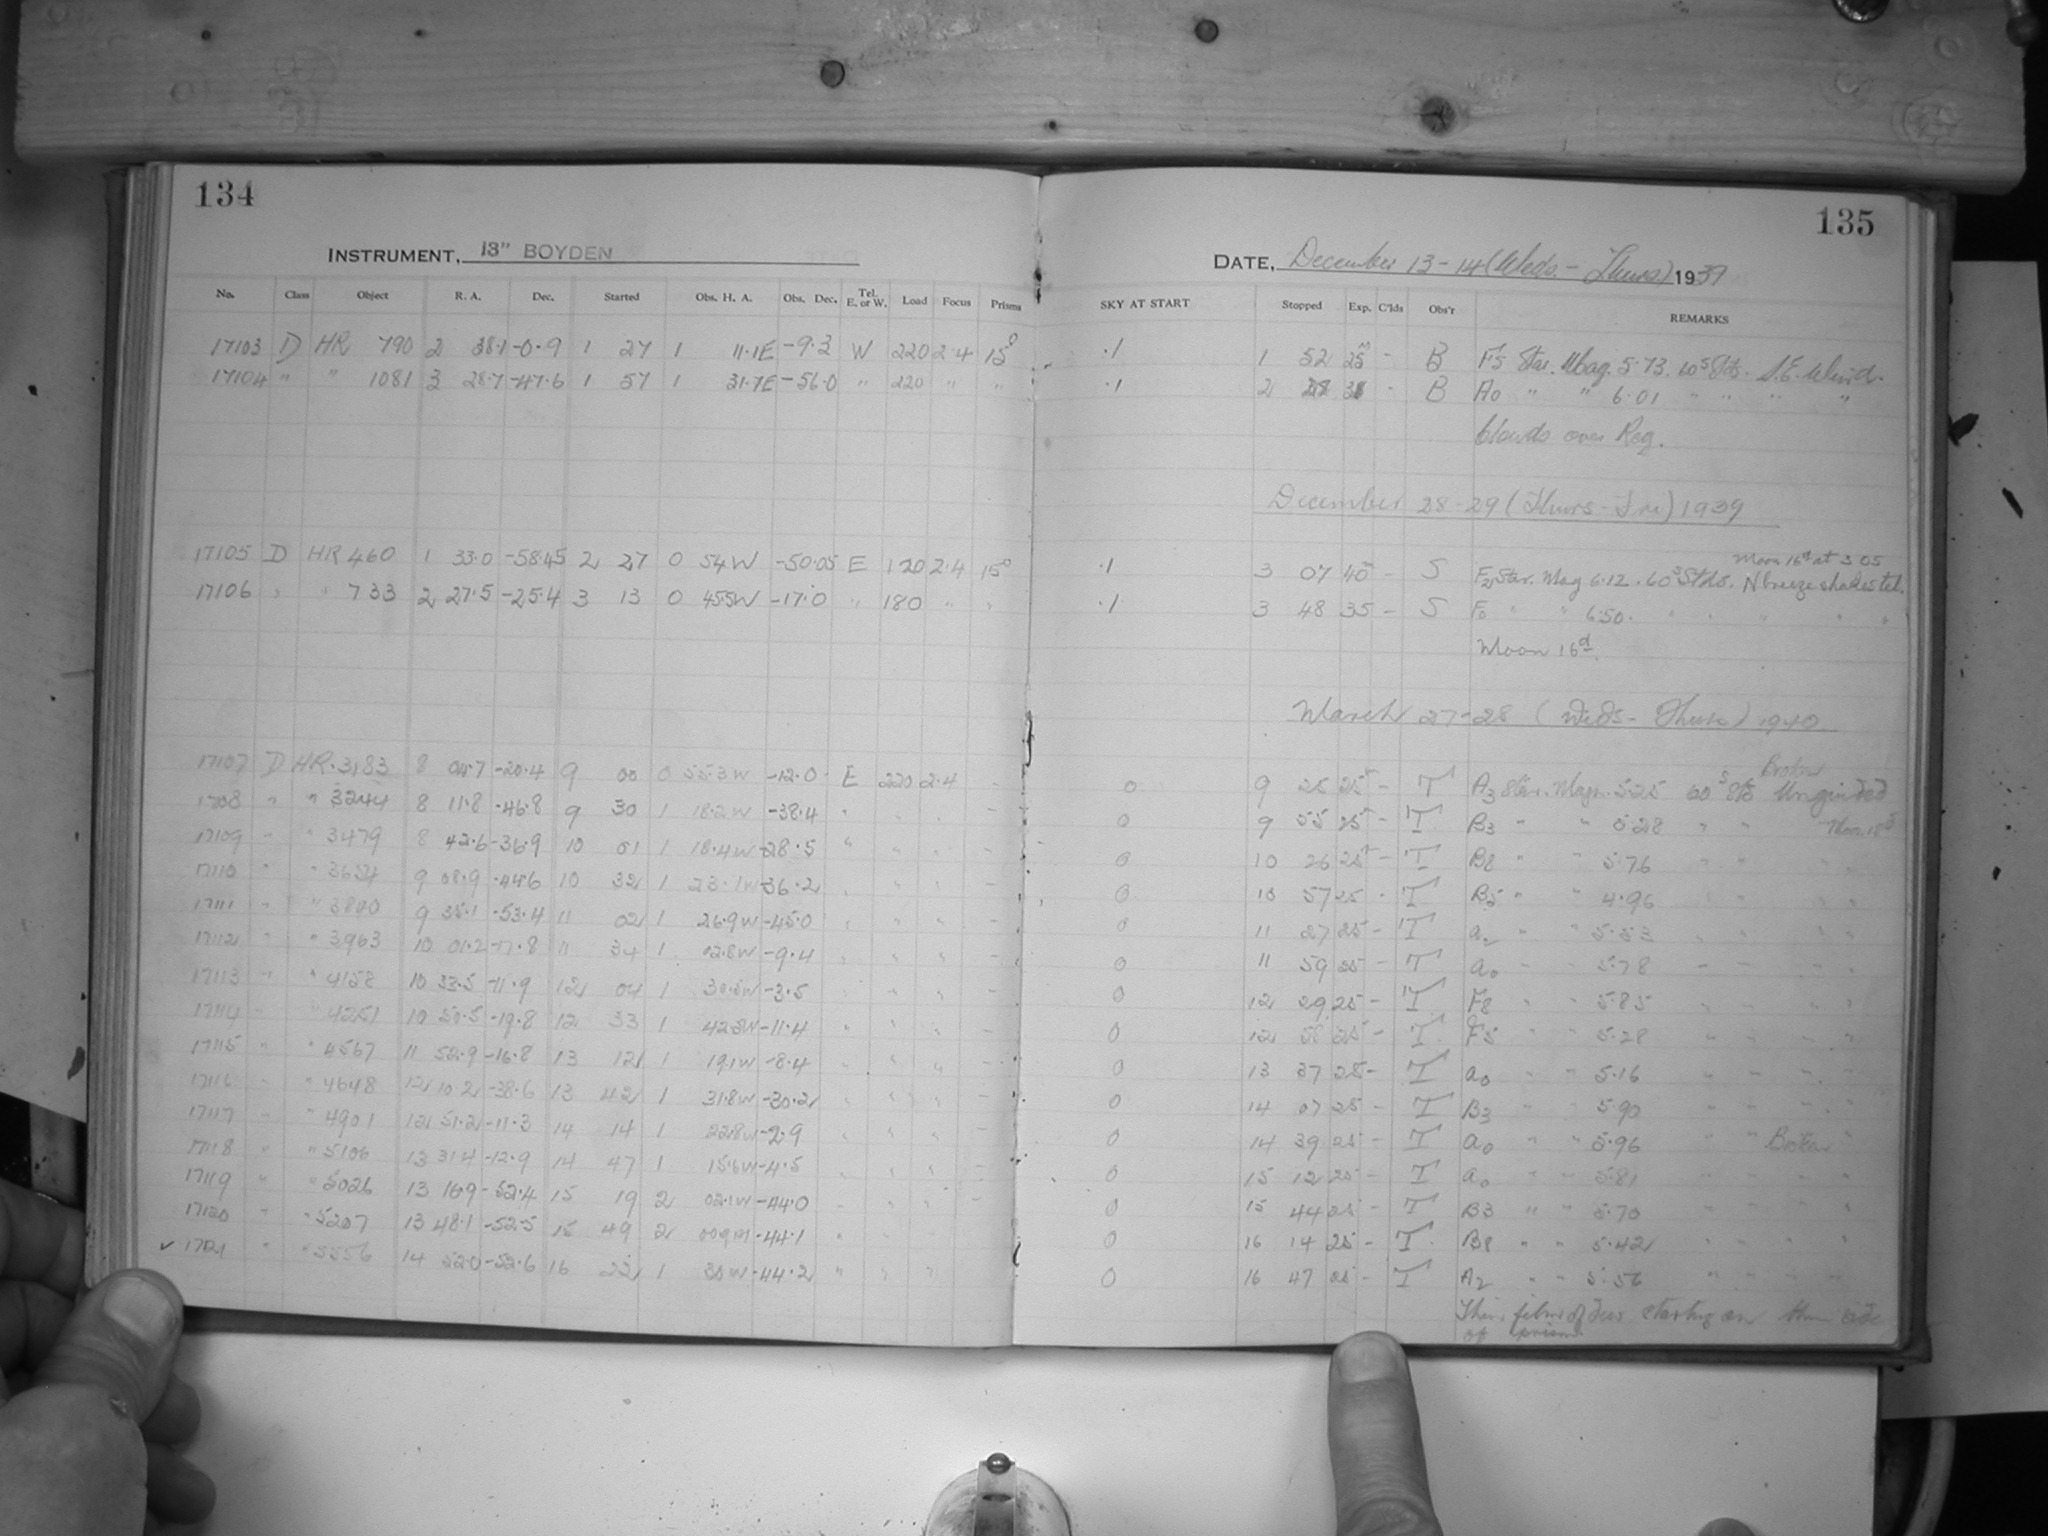 134
INSTRUMENT, 13" BOYDEN
No. Class Object R. A. Dec. Started Obs. H. A. Obs. Dec. Tel. E. or W. Load Focus Prisms
17103 D HR 790 2 38.1 -0.9 1 27 1 11.1E -9.3 W 220 2.4 15°
17104 " " 1081 3 28.7 -47.6 1 57 1 31.7E -56.0 " 220 " "
17105 D HR 460 1 33.0 -58.45 2 27 0 54W -50.05 E 120 2.4 15°
17106 " " 733 2 27.5 -25.4 3 13 0 45.5W -17.0 " 180 " "
17107 D HR. 3183 8 04.7 -20.4 9 00 0 55.3W -12.0 E 220 2.4 -
1708 " " 3244 8 11.8 -46.8 9 30 1 18.2W -38.4 " " " -
17109 " " 3479 8 42.6 -36.9 10 01 1 18.4W -28.5 " " " -
17110 " " 3654 9 08.9 -44.6 10 32 1 23.1W -36.2 " " " -
17111 " " 9 35.1 -53.4 11 02 1 26.9W -45.0 " " " -
17112 " " 3963 10 01.2 -17.8 11 34 1 02.8W -9.4 " " " -
17113 " " 4158 10 33.5 -11.9 12 04 1 30.5W -3.5 " " " -
17114 " " 4251 10 50.5 -19.8 12 33 1 42.3W -11.4 " " " -
17115 " " 4567 11 52.9 -16.8 13 12 1 19.1W -8.4 " " " -
17116 " " 4648 12 10.2 -38.6 13 42 1 31.8W -30.2 " " " -
17117 " " 4901 12 51.2 -11.3 14 14 1 22.8W -2.9 " " " -
17118 " " 5106 13 31.4 -12.9 14 47 1 15.6W -4.5 " " " -
17119 " " 5026 13 16.9 -52.4 15 19 2 02.1W -44.0 " " " -
17120 " " 5207 13 48.1 -52.5 15 49 2 -44.1 " " "
✓ 17121 " " 5556 14 52.0 -52.6 16 22 1 30W -44.2 " " "
135
DATE, December 13-14 (Weds.- Thurs) 1939
SKY AT START Stopped Exp. C'lds Obs'r REMARKS
.1 1 52 25 - B F5 Star. Mag. 5.73. 60s Stds. S.E. Wind.
.1 2 28 31 - B A0 " " 6.01 " " " "
Clouds over Reg.
December 28-29 (Thurs-Fri) 1939
Moon 16d at 3 05
.1 3 07 40 - S F2 Star. Mag 6.12. 60s Stds. N breeze shakes tel.
.1 3 48 35 - S F0 " " 6.50. " " " " "
Moon 16d.
March 27-28 (Weds-Thurs) 1940
Broken
0 9 25 25 - T A3 Star. Magn. 5.25 60s Sts Unguided
0 9 55 25 - T B3 " " 5.28 " " Moon 18d
0 10 26 25 - T B8 " " 5.76 " " " "
0 10 57 25 - T B5 " " 4.96 " " " "
0 11 27 25 - T " " 5.53 " " " "
0 11 59 25 - T a0 " " 5.78 " " " "
0 12 29 25 - T F8 " " 5.85 " " " "
0 12 58 25 - T F5 " " 5.28 " " " "
0 13 37 25 - T a0 " " 5.16 " " " "
0 14 07 25 - T B3 " " 5.90 " " " "
0 14 39 25 - T a0 " " 5.96 " " Broken "
0 15 12 25 - T a0 " " 5.81 " " " "
0 15 44 25 - T B3 " " 5.70 " " " "
0 16 14 25 - T B8 " " 5.42 " " " "
0 16 47 25 - T A2 " " 5.56 " " " "
Thin film of dew starting on
of prism